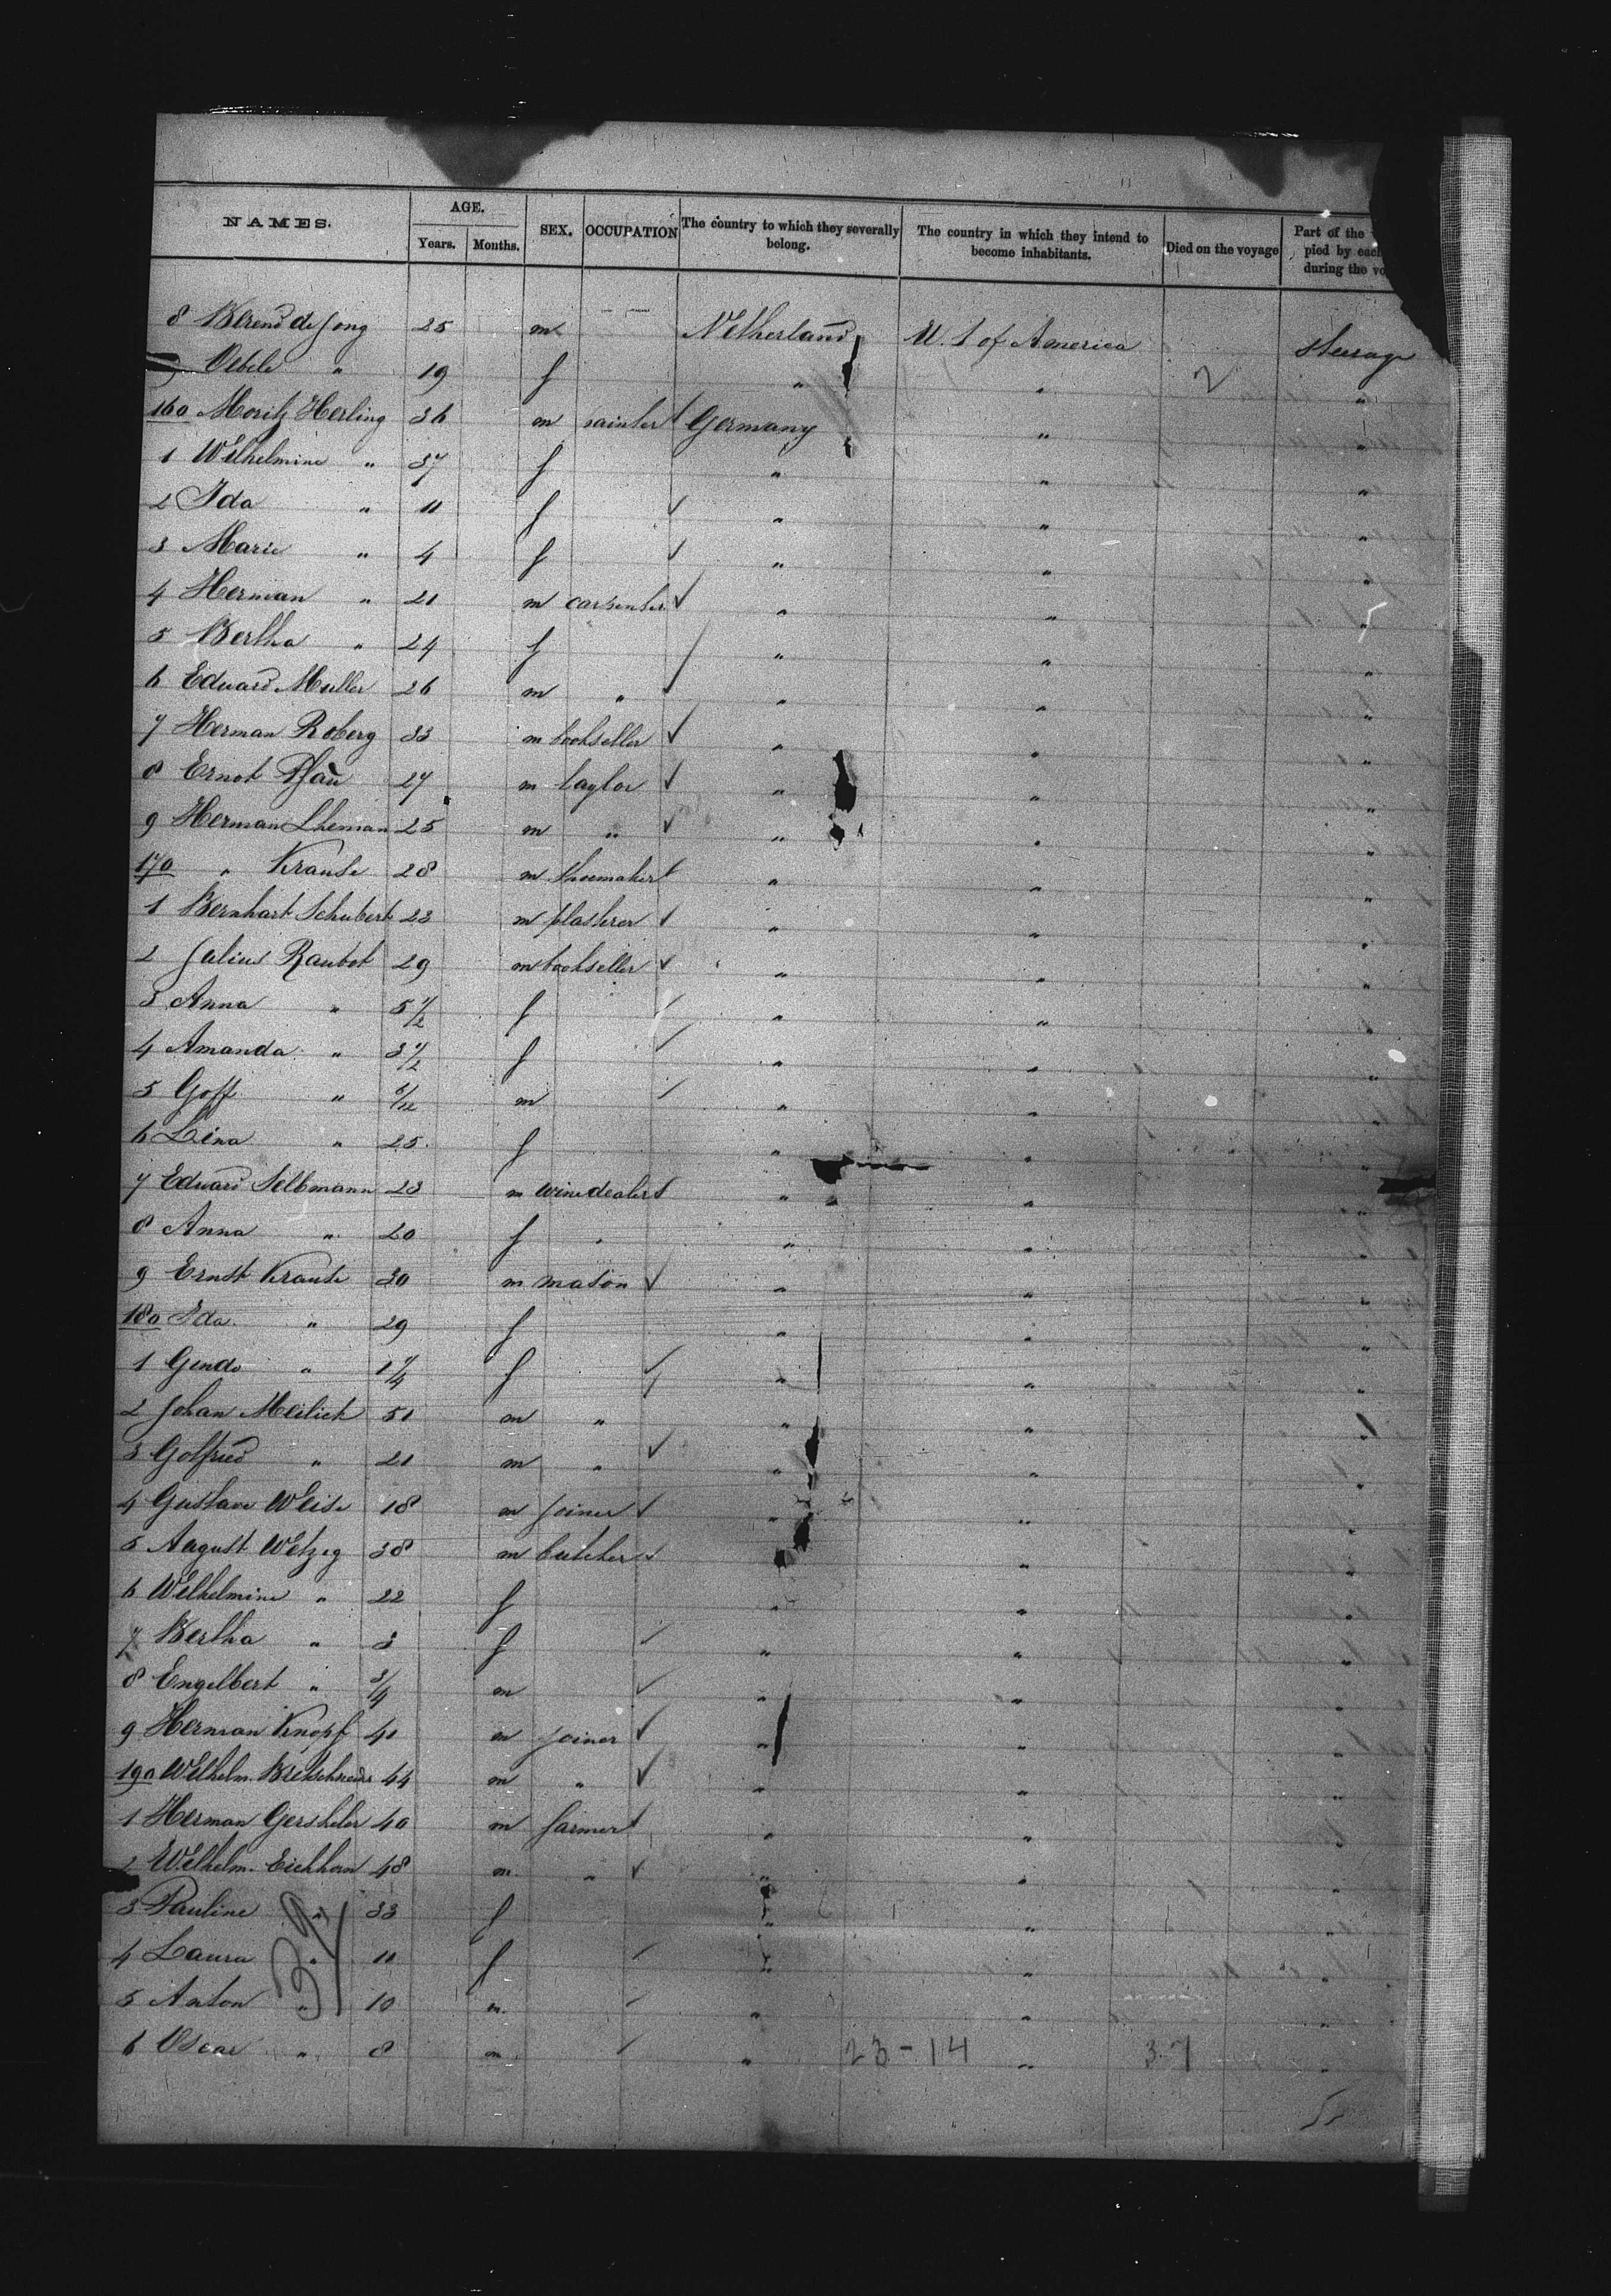 NAMES. AGE. Years. Months. SEX. OCCUPATION The country to which they severally belong. The country in which they intend to become inhabitants. Died on the voyage Part of the pied by each during the vo
8 Berend de Jong 25 m Netherland U. S of America Steerage
9 Oebele " 19 f " " 2 "
160 Moritz Herling 36 m painter Germany " "
1 Wilhelmine " 37 f " " "
2 Ida " 11 f " " "
3 Marie " 4 f " " "
4 Herman " 21 m carpenter " " "
5 Bertha " 24 f " " "
6 Eduard Muller 26 m " " " "
7 Herman Roberg 33 m bookseller " " "
8 Ernst Pfau 27 m taylor " " "
9 Herman Lheman 25 m " " " "
170 " Krause 28 m shoemaker " " "
1 Bernhart Schubert 23 m plasterer " " "
2 Julius Raubot 29 m bookseller " " "
3 Anna " 5 1/2 f " " "
4 Amanda " 3 1/2 f " " "
5 Goff " m " " "
6 Lina " 25 f " " "
7 Eduard Selbmann 23 m winedealer " " "
8 Anna " 20 f " " " "
9 Ernst Krause 30 m mason " " "
180 Ida " 29 f " " "
1 " 1 1/4 f " " "
2 Johan Meilich 51 m " " " "
3 Golfried " 21 m " " " "
4 Gustave Weise 18 m joiner " " "
5 August Wetzig 38 m butcher " " "
6 Wilhelmine " 22 f " " "
7 Bertha " 3 f " " "
8 Engelbert " 3/4 m " " "
9 Herman Knopf 41 m joiner " " "
190 Wilhelm. Bretschneider 44 m " " " "
1 Herman 40 m farmer " " "
2 Wilhelm. Eichhorn 48 m " " " "
3 Pauline " 33 f " " "
4 Laura " 11 f " " "
5 Anton " 10 m " " "
6 Oscar " 8 m " 23-14 " 37 "